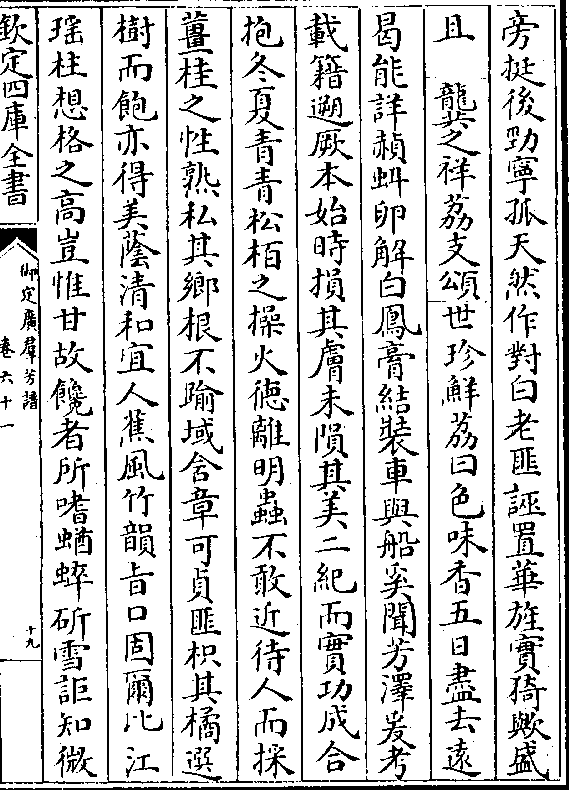 旁挺後勁寧孤天然作對白老匪誣置華旌實猗歟盛
且　龔芝之祥荔支頌世珍鮮荔曰色味香五日盡去遠
曷能詳赬虯卵解白鳳膏結裝車與船奚聞芳澤爰考
載籍遡厥本始時損其膚未隕其美二紀而實功成合
抱冬夏青青松栢之操火德離明蟲不敢近待人而採
薑桂之性熟私其鄉根不踰域含章可貞匪枳其橘選
樹而飽亦得美蔭清和宜人蕉風竹韻旨口固爾比江
瑶柱想格之高豈惟甘故饞者所嗜蝤蛑斫雪詎知微
欽定四庫全書
御定廣羣芳譜
卷六十一
十九